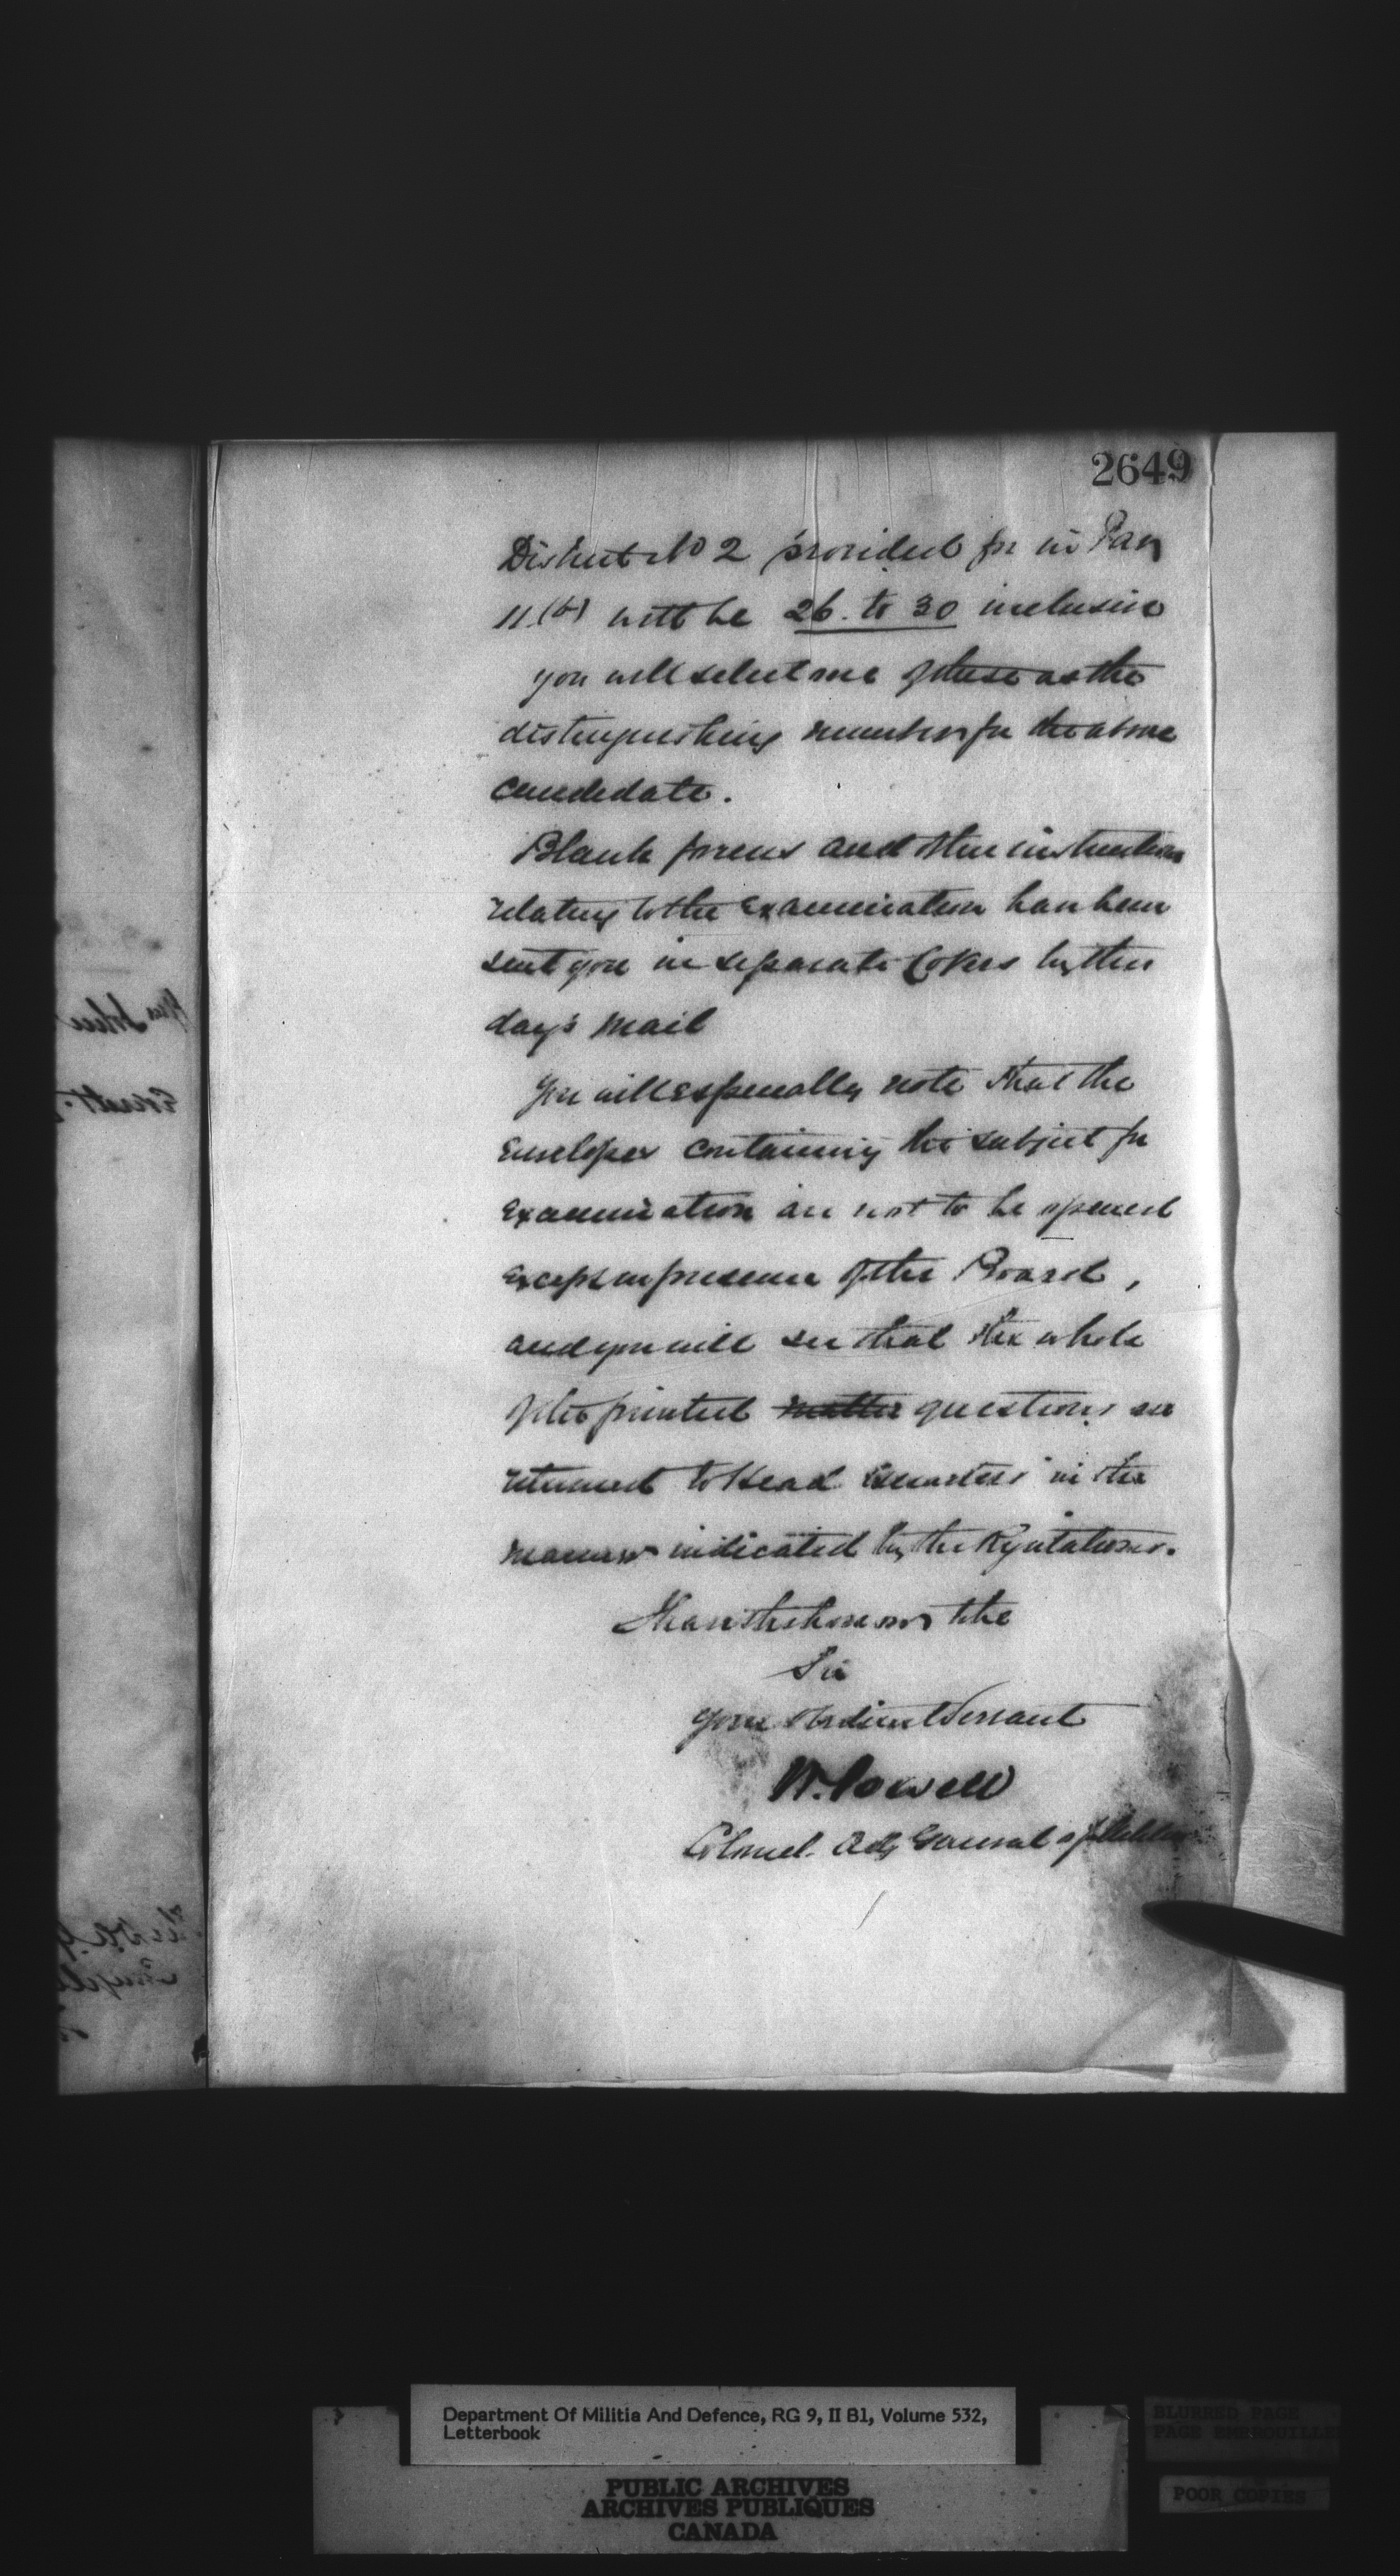 2649
District No 2 provided for in Par
11.(b) will be 26. to 30 inclusive
you will select one of these as the
distinguishing number for the above
candidate.
Blank forms and other instructions
relating to the Examination have been
sent you in separate Covers by this
day's mail
You will especially note that the
Envelopes containing the subject for
Examination are not to be opened
Except in presence of the Board,
and you will see that the whole
of the printed matter questions are
returned to Head Quarters in the
manner indicated by the Regulations.
I have the honor to be
Sir
Your obedient Servant
W. Powell
Colonel. Adj General of Militia
Department Of Militia And Defence, RG 9, II B1, Volume 532,
Letterbook
PUBLIC ARCHIVES
ARCHIVES PUBLIQUES
CANADA
BLURRED PAGE
PAGE EMBROUILLE
POOR COPIES